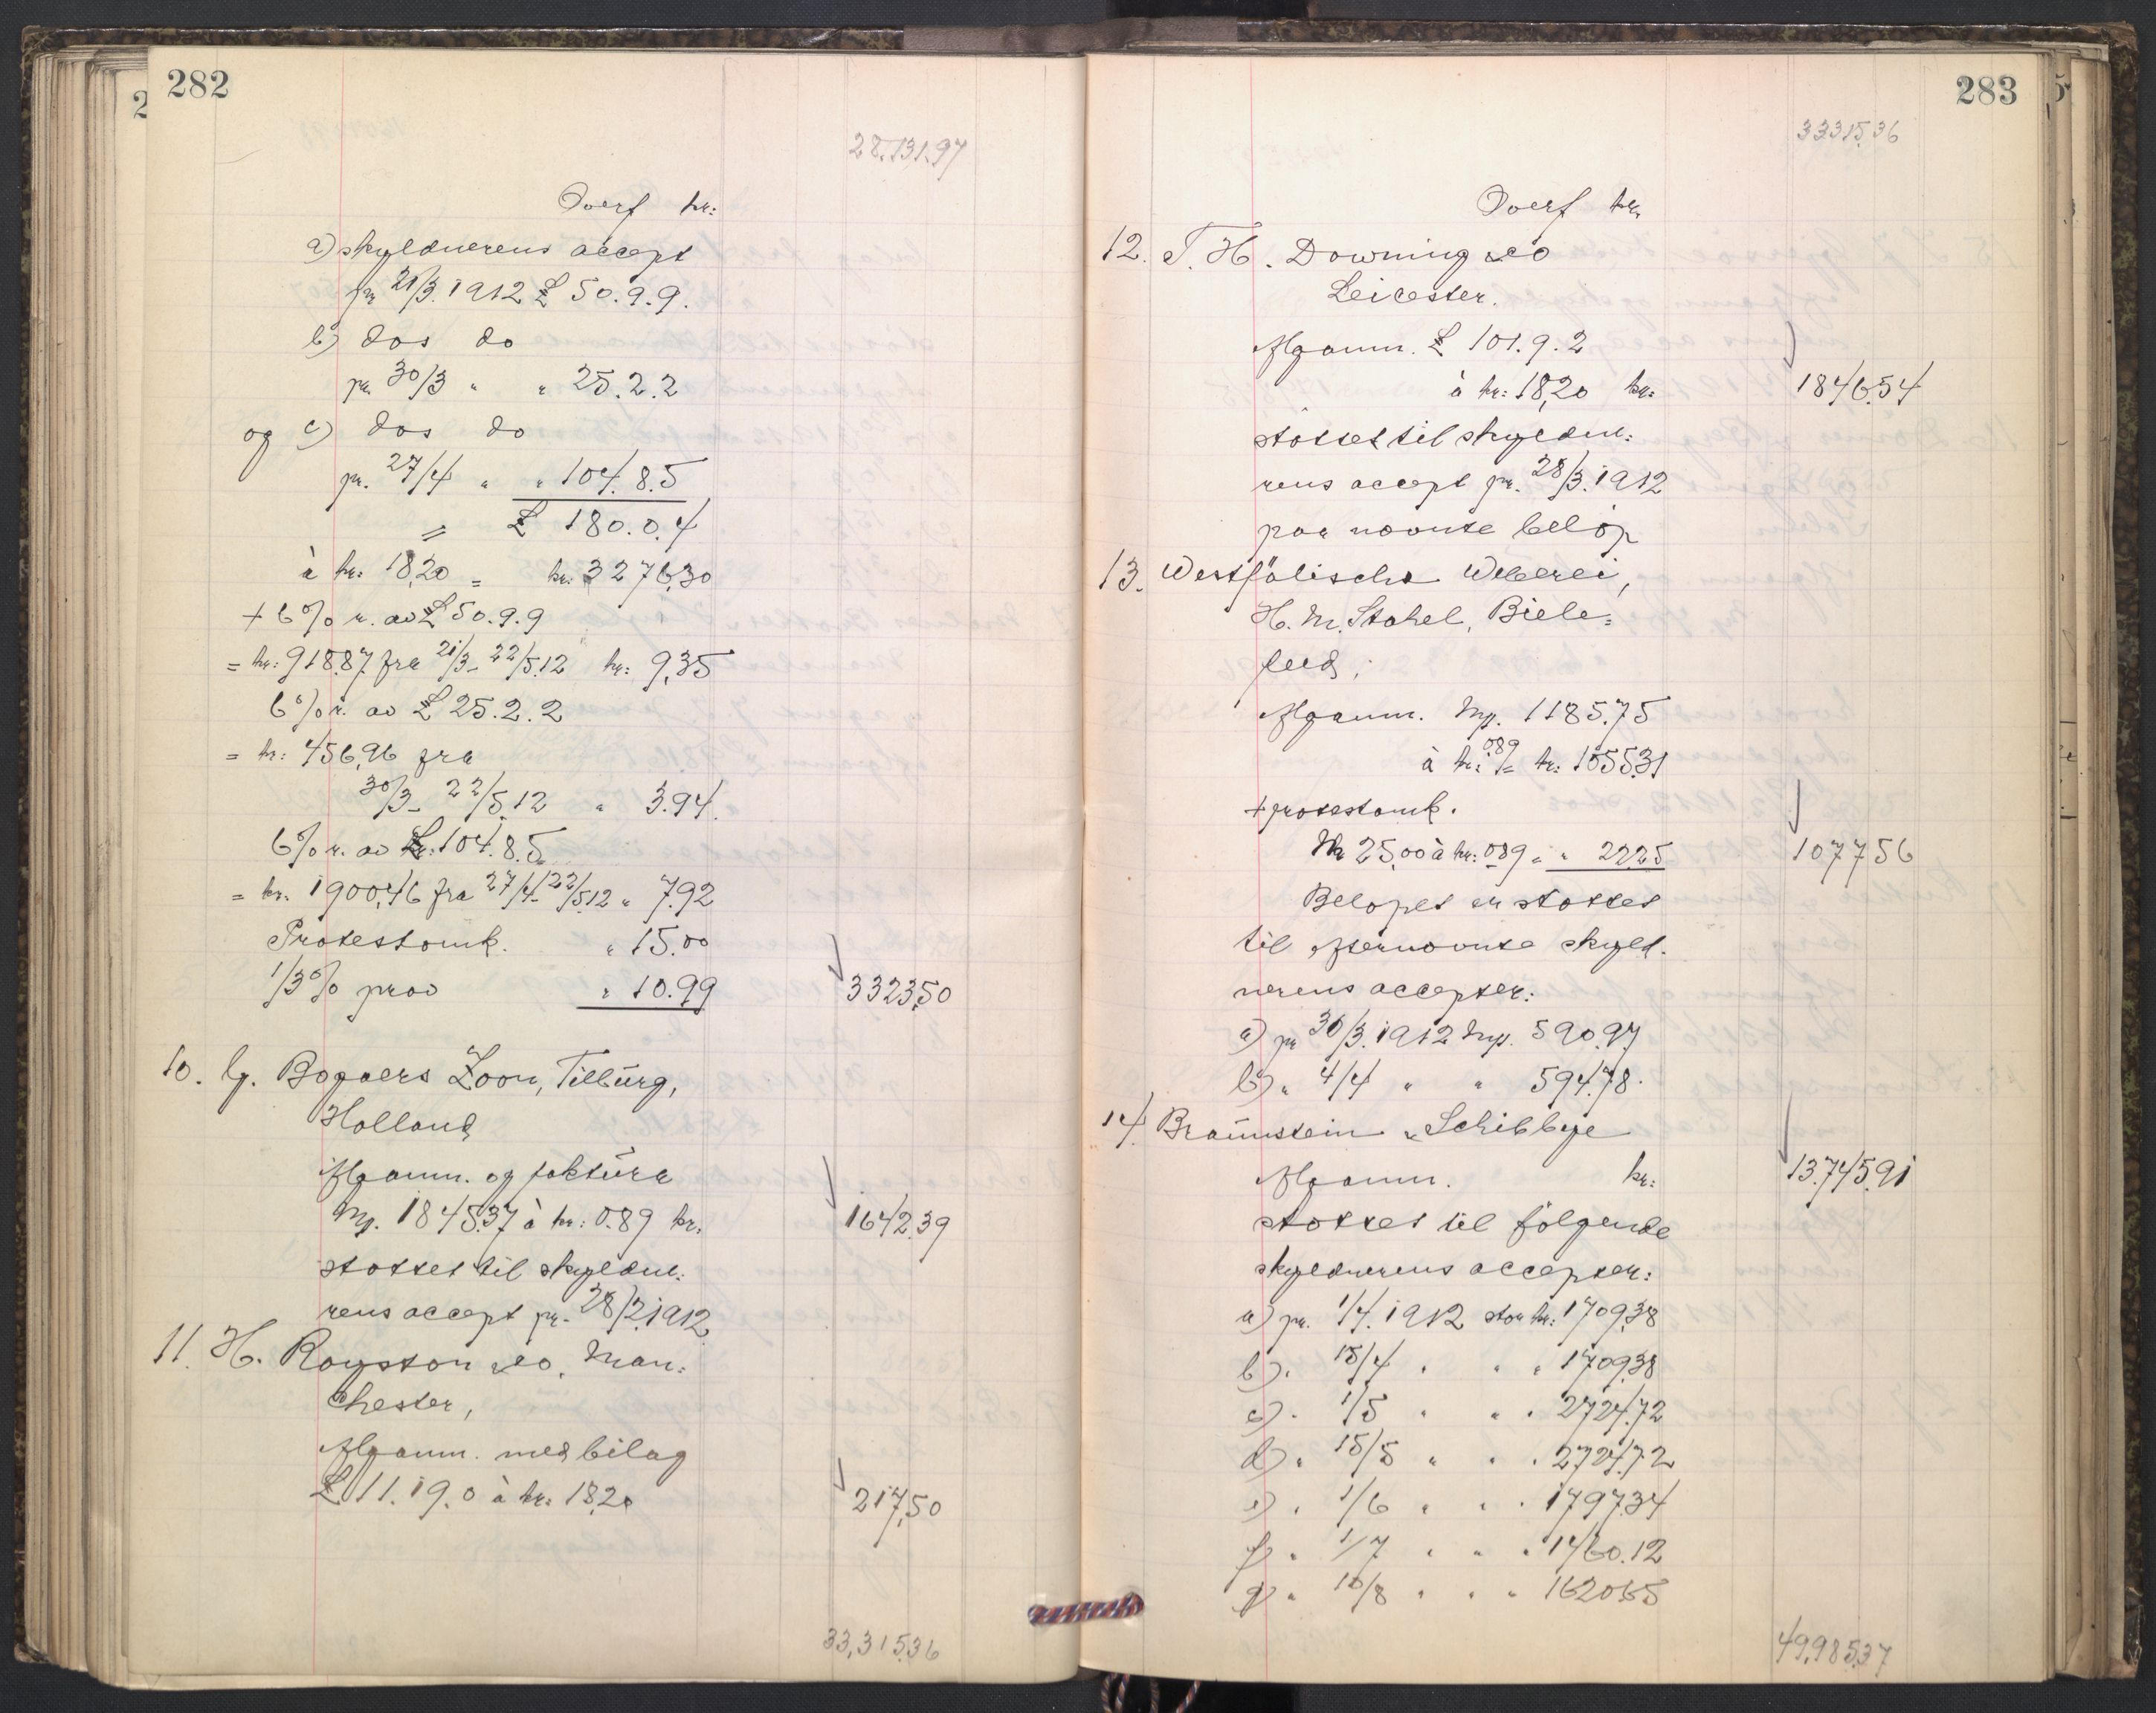 282
28.131.97
Overf kr:
a) skyldnerens accept
pr 21/3. 1912 £ 50.9.9.
b) dos do
pr. 30/3 " " 25.2.2
og c) dos do
pr. 27/4 " " 104.8.5
= £ 180.0.4
à kr: 18,20 = kr: 3276,30
+ 6% r. av £ 50.9.9
= kr: 918.87 fra 21/3 - 22/5.12 kr: 9,35
6% r. av £ 25.2.2
= kr: 456,96 fra
30/3 - 22/5.12 " 3.94.
6% r. av £ 104.8.5
= kr. 1900,46 fra 27/4 - 22/5.12 " 7.92
Protestomk. " 15.00
1/3% prov " 10.99 3323,50
10. G. Bogaers Zoon, Tilburg,
Holland
Afganm. og faktura
Mp. 1845.37 à kr: 0.89 kr. 1642.39
støttet til skyldne:
rens accept pr. 28/2.1912
11. H. Royston & Co, Man:
chester,
Afganm. med bilag
£ 11.19.0 à kr: 18,20 217,50
33,315.36
283
33315,36
Overf kr.
12. T. H. Downing & Co
Leicester.
Afganm. £ 101.9.2
à kr: 18,20 kr: 1846.54
støttet til skyldne:
rens accept pr. 28/3.1912
paa nævnte beløp
13. Westfälische Weberei,
H. M. Stahel, Biele:
feld,
Afganm. Mp. 1185.75
à kr: 0.89 = kr: 1055.31
+ protestomk.
Mk 25,00 à kr: 089 " " 22.25 1077 56
Beløpet er støttet
til efternævnte skyld.
nerens accepter:
a) pr 30/3. 1912 Mp. 590.97
b) " 4/4 " " 594.78.
14. Braunstein & Schibbye
Afganm. kr: 13.745.91
støttet til følgende
skyldnerens accepter:
a) pr. 1/4. 1912 stor kr: 1709,38
b) " 15/4 " " " 1709.38
c) " 1/5 " " " 2724.72
d) " 15/5 " " " 2724.72
e) " 1/6 " " " 1797.34
f) " 1/7 " " " 1460.12
g) " 10/8 " " " 1620.65
49,985.37